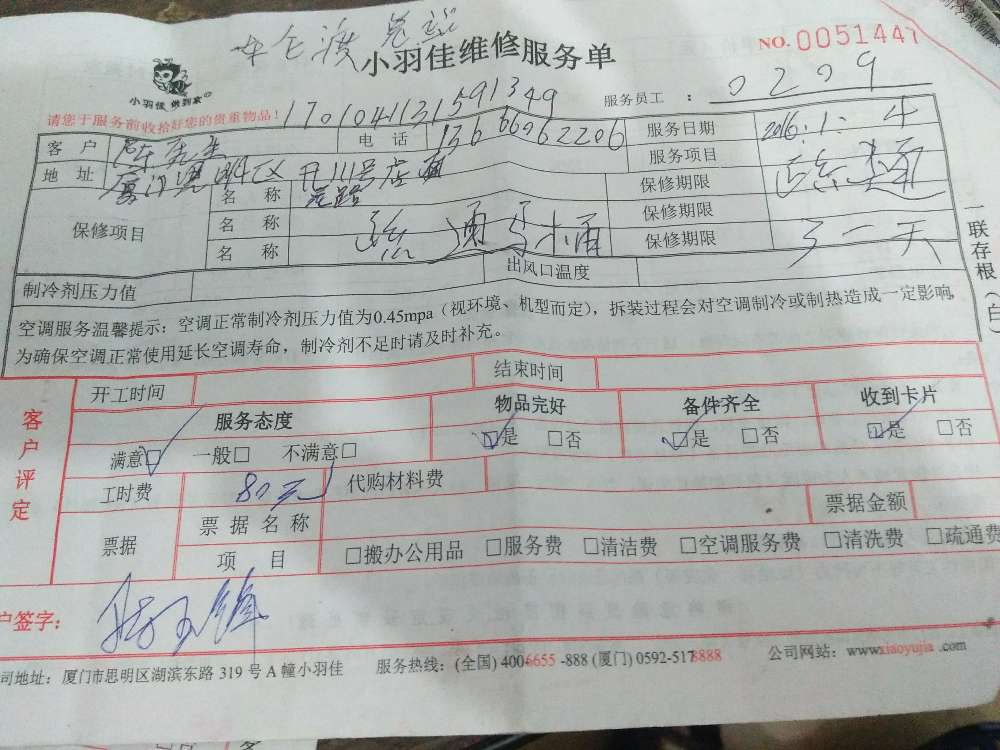 小羽佳维修服务单
NO. 0051447
小羽佳 做到家
请您于服务前收拾好您的贵重物品!
170104131591349
服务员工 : 0209
客户 陈先生 电话 13666062206 服务日期 2016.1.4
地址 厦门思明区 号店 服务项目
保修项目 名称 保修期限
名称 通马桶 保修期限
名称 保修期限 一天
制冷剂压力值 出风口温度
一联存根(白)
空调服务温馨提示:空调正常制冷剂压力值为0.45mpa(视环境、机型而定),拆装过程会对空调制冷或制热造成一定影响,
为确保空调正常使用延长空调寿命,制冷剂不足时请及时补充。
客户评定
开工时间 结束时间
服务态度 物品完好 备件齐全 收到卡片
满意□ 一般□ 不满意□ □是 □否 □是 □否 □是 □否
工时费 80元 代购材料费
票据 票据名称 票据金额
项目 □搬办公用品 □服务费 □清洁费 □空调服务费 □清洗费 □疏通费
户签字:
司地址:厦门市思明区湖滨东路 319 号 A 幢小羽佳 服务热线:(全国) 4006655 -888 (厦门) 0592-5178888 公司网站:www.xiaoyujia .com